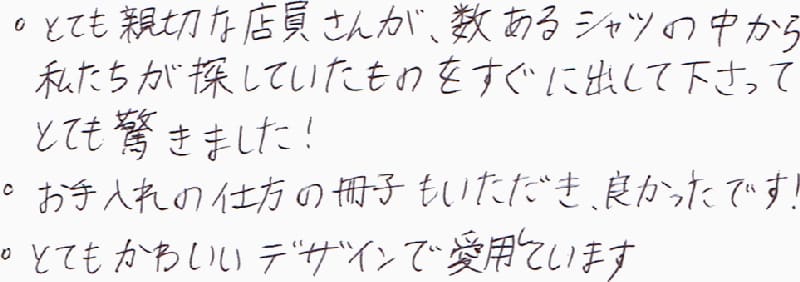 。とても親切な店員さんが、数あるシャツの中から
私たちが探していたものをすぐに出して下さって
とても驚きました!
。お手入れの仕方の冊子もいただき、良かったです!
。とてもかわいいデザインで愛用しています